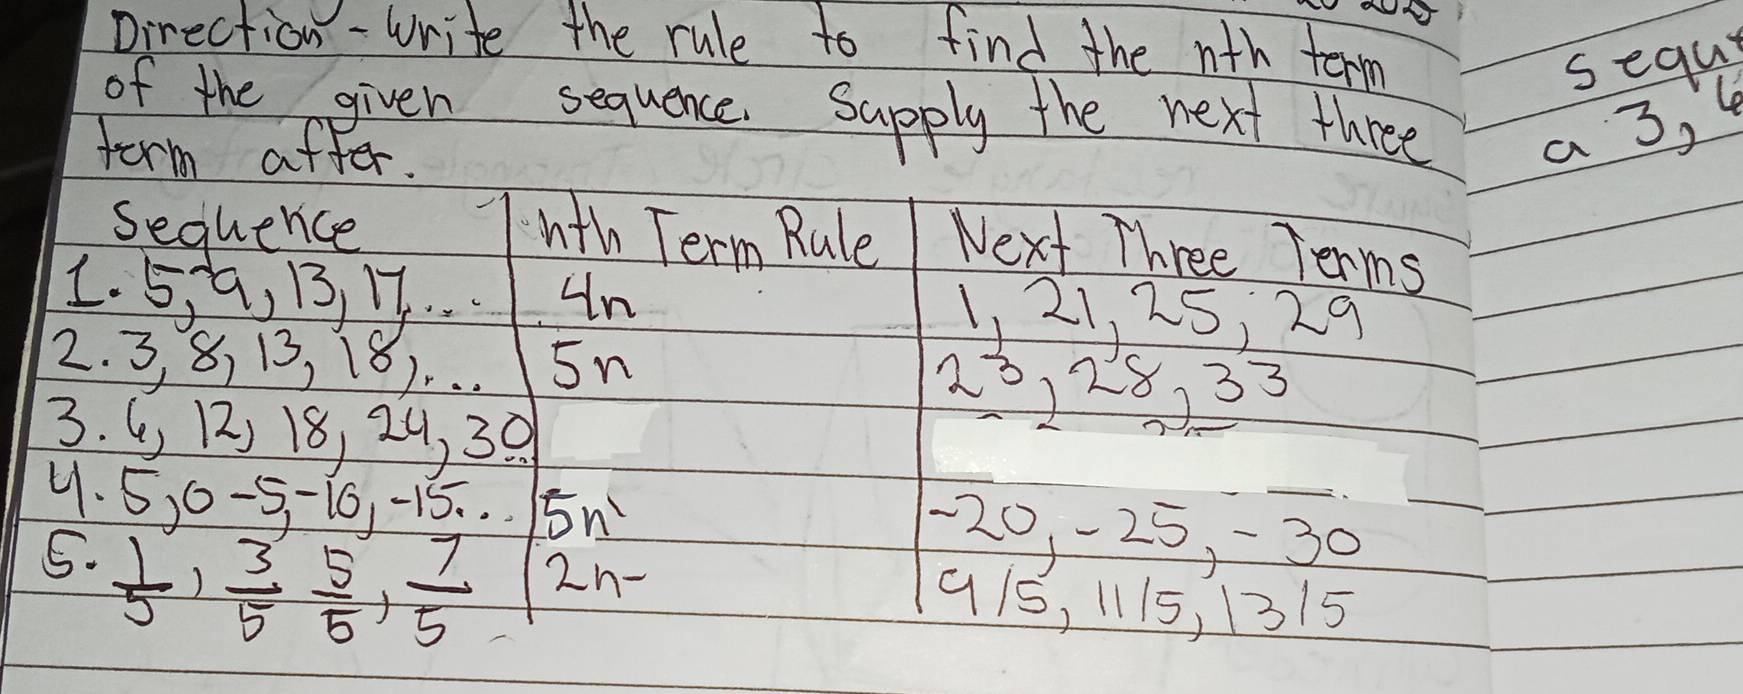 Direction - Write the rule to find the nth term
of the given sequence. Supply the next three
term after.
Sequence nth Term Rule Next Three Terms
1. 5, 9, 13, 17, ... 4n 1, 21, 25, 29
2. 3, 8, 13, 18, ... 5n 23, 28, 33
3. 6, 12, 18, 24, 30...
4. 5, 0 -5, -10, -15... 5n -20, -25, -30
5. 1/5, 3/5 5/5, 7/5 2n- 9/5, 11/5, 13/5
sequ
a 3,